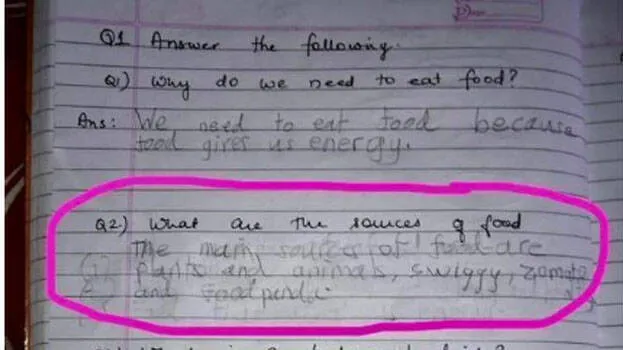 Q1 Answer the following.
Q1) Why do we need to eat food?
Ans: We need to eat food because
food gives us energy.
Q2.) What are the sources of food
The main sources of food are
plants and animals, swiggy, zomato
and Foodpanda.